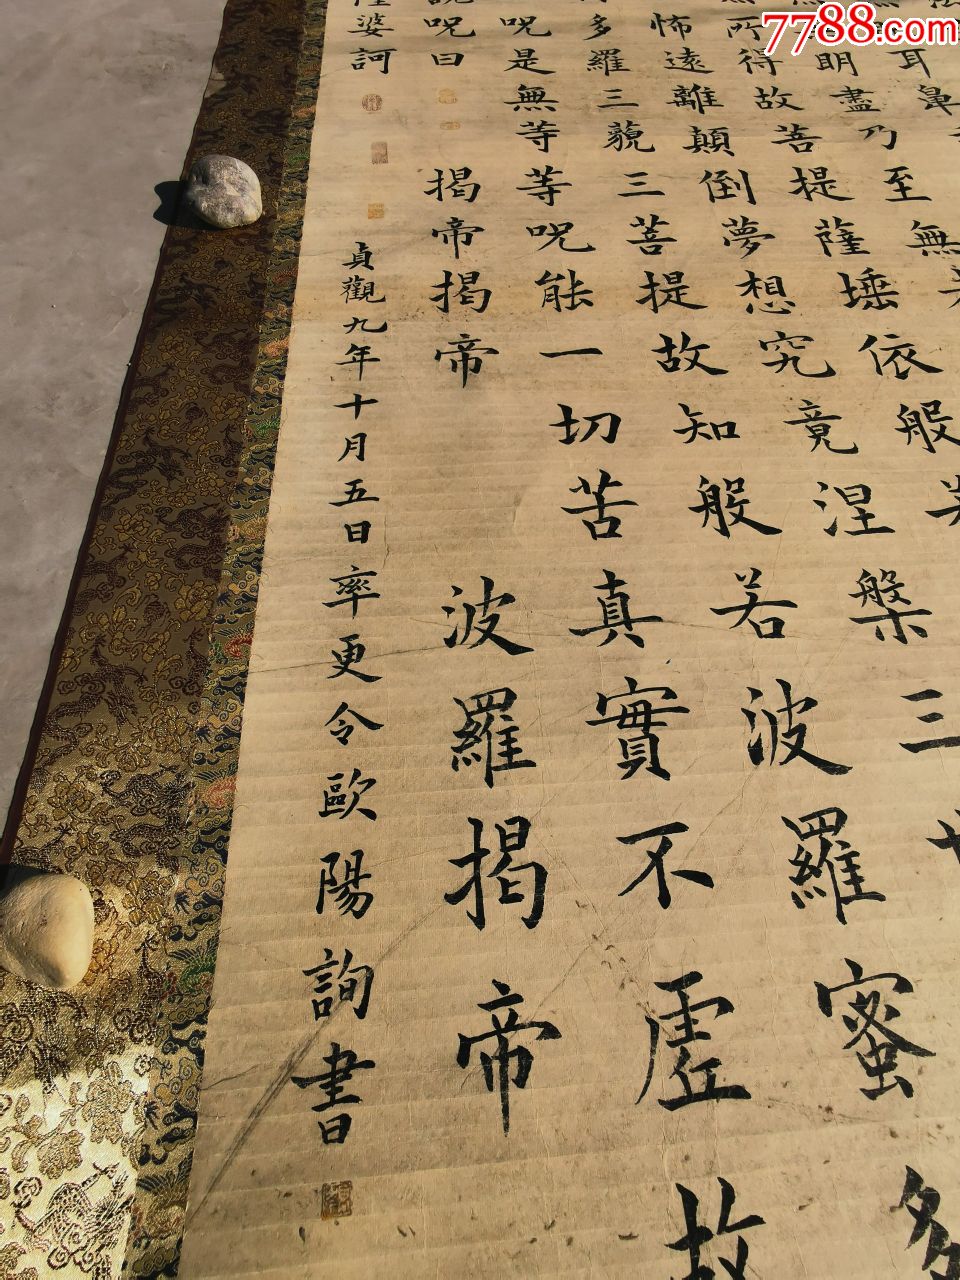 7788.com
耳鼻
明盡乃至無老
所得故菩提薩埵依般若
怖遠離顛倒夢想究竟涅槃三世
多羅三藐三菩提故知般若波羅蜜多
呪是無等等呪能一切苦真實不虛故
說呪曰揭帝揭帝波羅揭帝
婆訶
貞觀九年十月五日率更令歐陽詢書